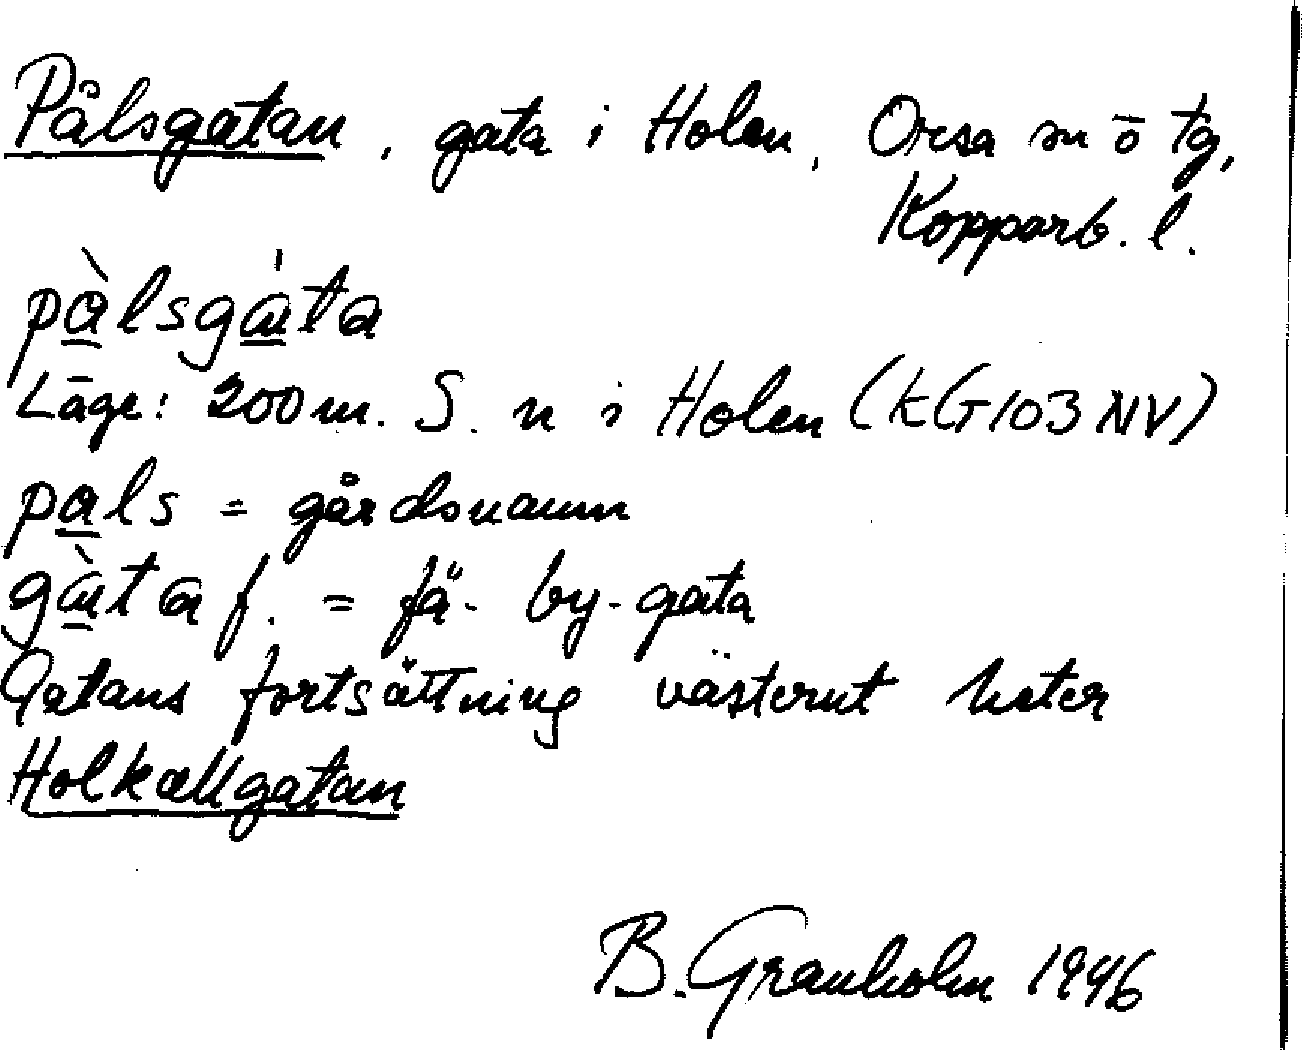 Pålsgatan, gata i Holen, Orsa sn ö tg,
Kopparb. l.
pàlsgáta
Läge: 200 m. S. n i Holen (KG103 NV)
pals = gårdsnamn
gàta f. = fä- by-gata
Gatans fortsättning västerut heter
Holkallgatan
B. Granholm 1946